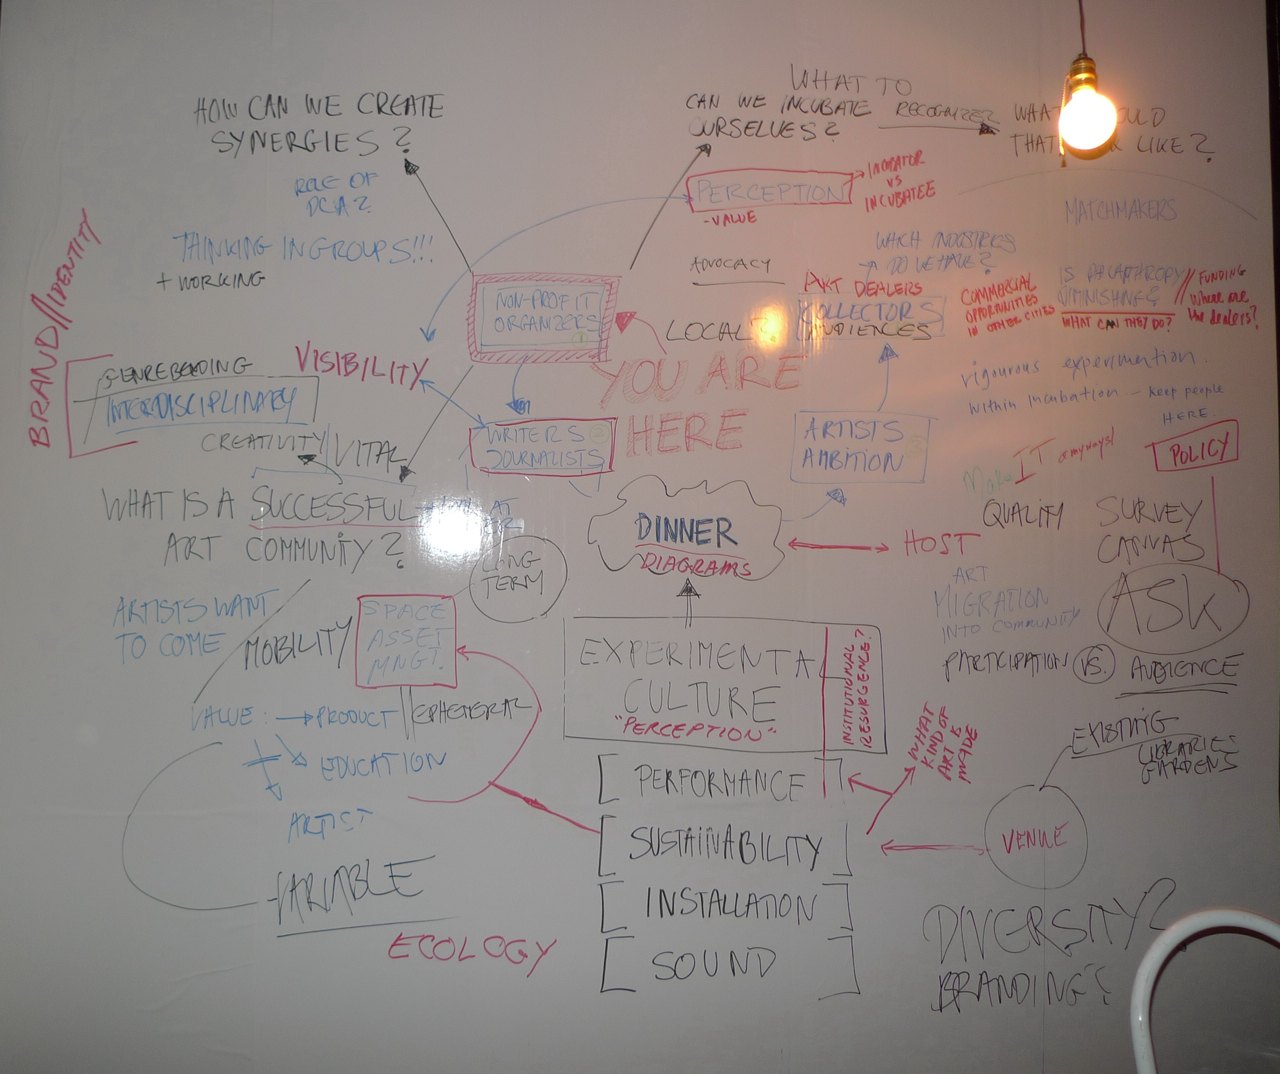 HOW CAN WE CREATE
SYNERGIES?
WHAT TO
CAN WE INCUBATE
OURSELVES?
RECOGNIZE?
THAT
LIKE?
ROLE OF
DCA?
THINKING IN GROUPS!!!
+ WORKING
PERCEPTION
- VALUE
INCUBATOR
VS
INCUBATEE
MATCHMAKERS
BRAND//IDENTITY
NON-PROFIT
ORGANIZERS
ADVOCACY
WHICH INDUSTRIES
DO WE HAVE?
ART DEALERS
LOCAL
AUDIENCES
COMMERCIAL
OPPORTUNITIES
IN OTHER CITIES
IS PHILANTHROPY
DIMINISHING?
WHAT CAN THEY DO?
// FUNDING
Where are
the dealers?
GENREBENDING
INTERDISCIPLINARY
VISIBILITY
YOU ARE
HERE
CREATIVITY
VITAL
WRITERS
JOURNALISTS
ARTISTS
AMBITION
within incubation - keep people
HERE.
Make IT anyways!
POLICY
WHAT IS A SUCCESSFUL
ART COMMUNITY?
DINNER
DIAGRAMS
HOST
QUALITY
SURVEY
CANVAS
ASK
LONG
TERM
ARTISTS WANT
TO COME
MOBILITY
SPACE
ASSET
MNGT.
ART
MIGRATION
INTO COMMUNITY
PARTICIPATION VS. AUDIENCE
EXPERIMENTAL
CULTURE
"PERCEPTION"
INSTITUTIONAL
RESURGENCE?
VALUE: PRODUCT
EPHEMERAL
EDUCATION
ARTIST
VARIABLE
ECOLOGY
[PERFORMANCE]
[SUSTAINABILITY]
[INSTALLATION]
[SOUND]
WHAT
KIND OF
ART IS
MADE
EXISTING
LIBRARIES
GARDENS
VENUE
DIVERSITY?
BRANDING?